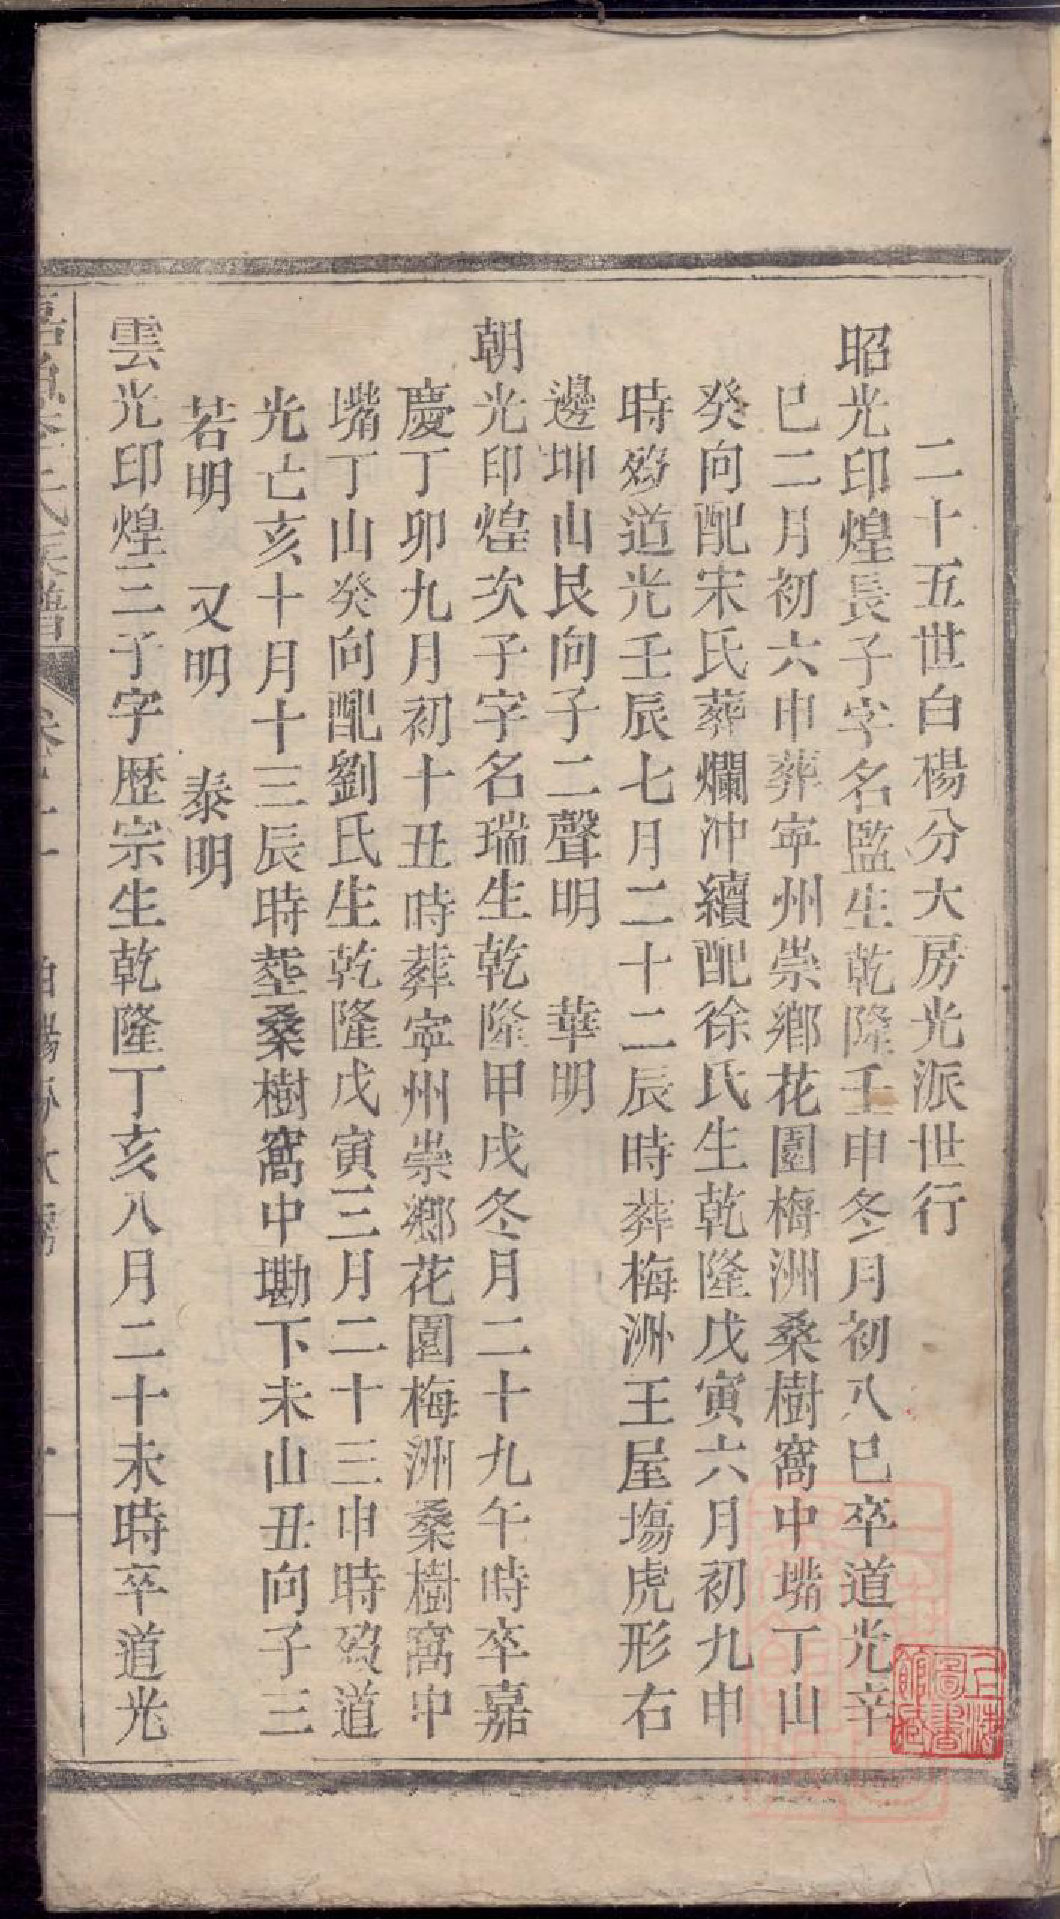 二十五世白楊分大房光派世行
昭光印煌長子字名監生乾隆壬申冬月初八巳卒道光辛
巳二月初六申葬寧州崇鄉花園梅洲桑樹窩中嘴丁山
癸向配宋氏葬爛冲續配徐氏生乾隆戊寅六月初九申
時歿道光壬辰七月二十二辰時葬梅洲王屋塲虎形右
邊坤山艮向子二聲明 華明
朝光印煌次子字名瑞生乾隆甲戌冬月二十九午時卒嘉
慶丁卯九月初十丑時葬寧州崇鄉花園梅洲桑樹窩中
嘴丁山癸向配劉氏生乾隆戊寅三月二十三申時歿道
光亡亥十月十三辰時塟桑樹窩中墈下未山丑向子三
若明 又明 泰明
雲光印煌三子字歷宗生乾隆丁亥八月二十未時卒道光
上海圖書館藏